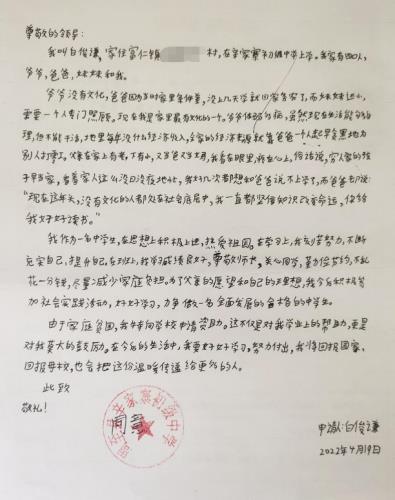 尊敬的领导:
我叫白俊谦,家住富仁镇 村,在辛家寨初级中学上学。我家有四口人,
爷爷,爸爸,妹妹和我。
爷爷没有文化,爸爸因为当时家里条件差,没上几天学就回家务农了,而妹妹还小,
需要一个人专门照顾。现在我是家里最有文化的一个。爷爷体弱多病,虽然现在生活能够自
理,但不能干活,地里每年没什么经济收入,全家的经济来源就靠爸爸一个人起早贪黑地为
别人打零工。父亲在家上有老,下有小,又当爸又当妈,我看在眼里,疼在心上。俗话说,穷人家的孩
子早当家,看着家人这么没日没夜地忙,我好几次都想和爸爸说不上学了,而爸爸却说:
“现在这年头,没有文化的人都处在社会底层中,我一直都坚信知识改变命运,你给
我好好读书。”
我作为一名中学生,在思想上积极上进,热爱祖国。在学习上,我刻苦努力,不断
充实自己,提升自己。在班上,我学习成绩良好,尊敬师长,关心同学,勤俭节约,不乱
花一分钱,尽量减少家庭负担。为了父亲的愿望和自己的理想,我今后积极参
加社会实践活动,好好学习,力争做一名全面发展的合格的中学生。
由于家庭贫困,我特向学校申请资助。这不仅是对我学业上的帮助,更是
对我莫大的鼓励。在今后的生活中,我要好好学习,努力付出,我将回报国家、
回报母校,也会把这份温暖传递给更多的人。
此致
敬礼!
同意
辛家寨初级中学
申请人:白俊谦
2022年4月19日